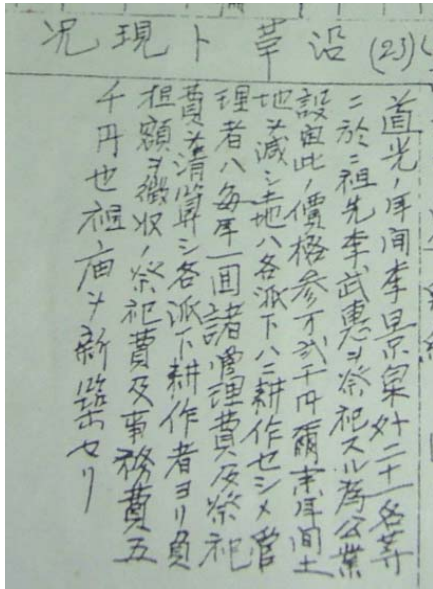 (23) 沿革ト現況
道光ノ年间李景泉外二十一名等
ニ於ニ祖先李武惠ヲ祭祀スル為公業
設立此ノ價格参万弐千円爾来年间土
地ヲ減シ土地ハ各派下ハニ耕作セシメ管
理者ハ每年一回諸管理費及祭祀
費ヲ清算シ各派下耕作者ヨリ負
担額ヲ徴収ノ祭祀費及事務費五
千円也祖庙ヲ新築セリ